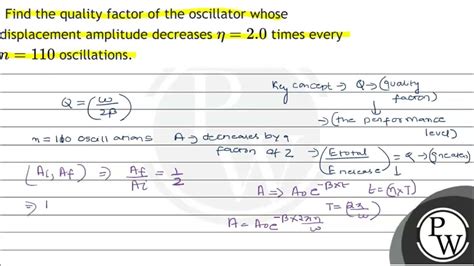 Find the quality factor of the oscillator whose
displacement amplitude decreases η = 2.0 times every
n = 110 oscillations.
Key concept → Q → (quality
factor)
Q = (ω/2β)
→ (the performance
level)
n = 110 oscillations A → decreases by
factor of 2 → (E total / E increase) = Q → (greater)
(Ai, Af) ⇒ Af/Ai = 1/2
A ⇒ A₀e^-βxt t = (n x T)
T = (2π/ω)
⇒ 1
A = A₀e^-βx2πn/ω
PW